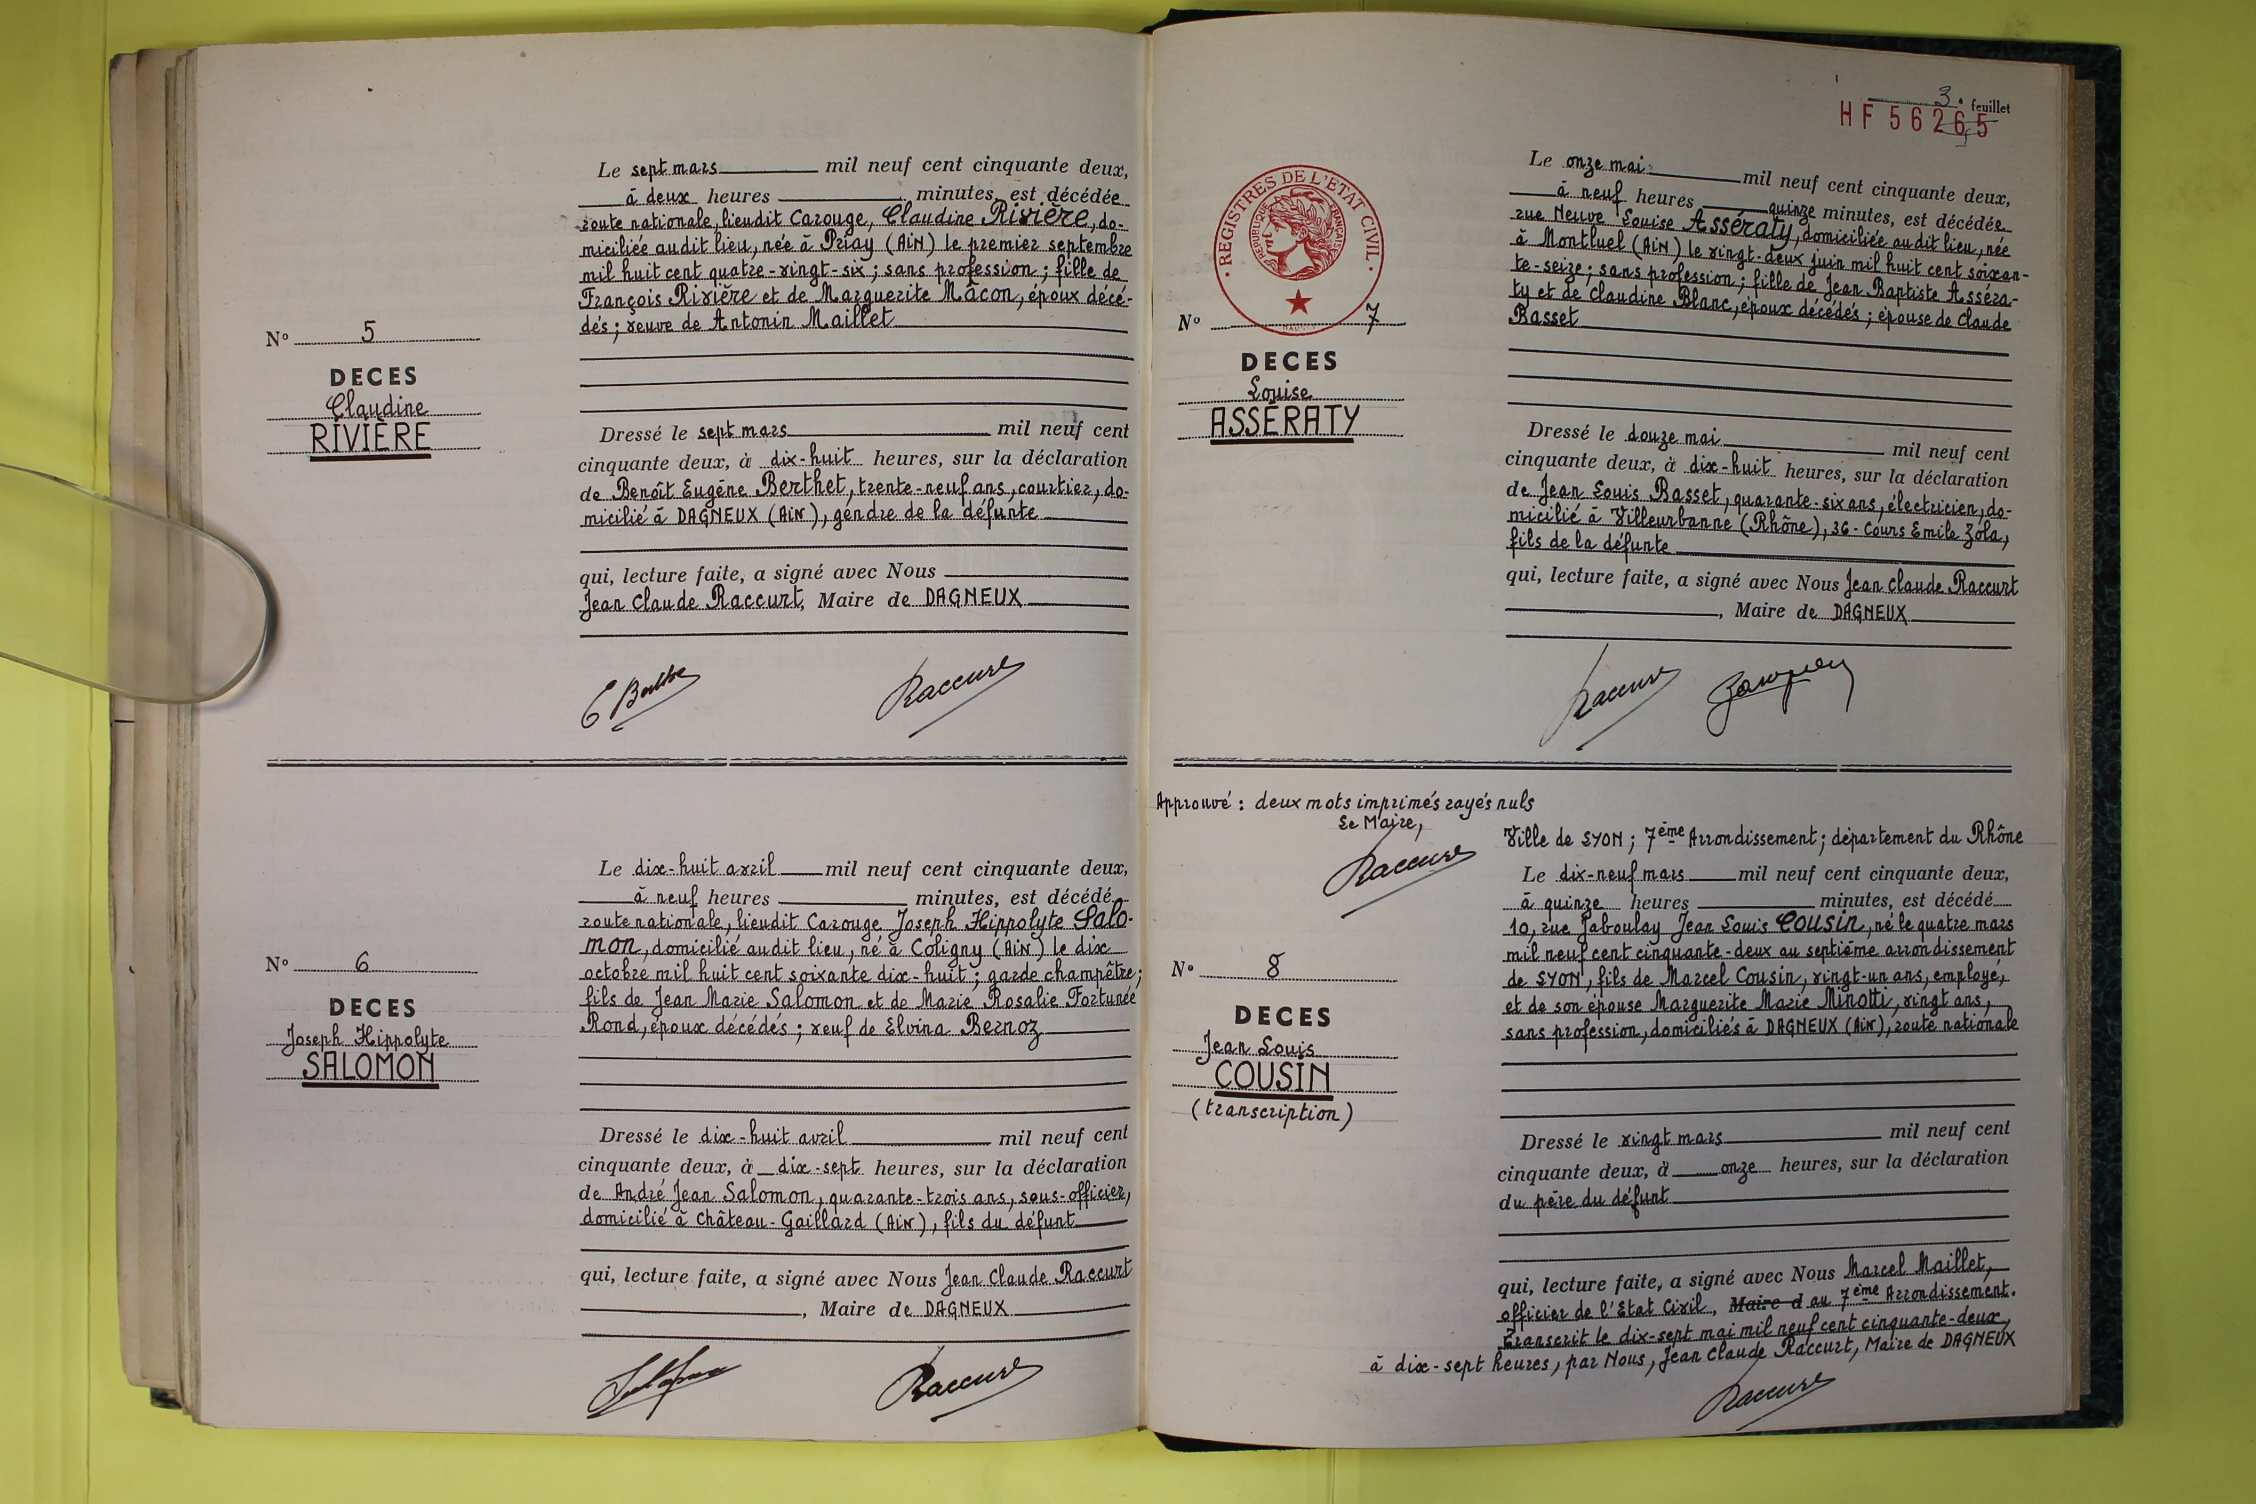 Le sept mars mil neuf cent cinquante deux,
à deux heures minutes, est décédée
route nationale, lieudit Carouge, Claudine Rivière, do-
miciliée audit lieu, née à Priay (AiN) le premier septembre
mil huit cent quatre-vingt-six ; sans profession ; fille de
François Rivière et de Marguerite Mâcon, époux décé-
dés ; veuve de Antonin Maillet
N° 5
DECES
Claudine
RIVIÈRE
Dressé le sept mars mil neuf cent
cinquante deux, à dix-huit heures, sur la déclaration
de Benoît Eugène Berthet, trente-neuf ans, courtier, do-
micilié à DAGNEUX (AiN), gendre de la défunte
qui, lecture faite, a signé avec Nous
Jean Claude Raccurt, Maire de DAGNEUX
Raccurt
Le dix-huit avril mil neuf cent cinquante deux,
à neuf heures minutes, est décédé
route nationale, lieudit Carouge Joseph Hippolyte Salo-
mon, domicilié audit lieu, né à Coligny (AiN) le dix
octobre mil huit cent soixante dix-huit ; garde champêtre ;
fils de Jean Marie Salomon et de Marie Rosalie Fortunée
Rond, époux décédés ; veuf de Elvina Bernoz
N° 6
DECES
Joseph Hippolyte
SALOMON
Dressé le dix-huit avril mil neuf cent
cinquante deux, à dix-sept heures, sur la déclaration
de André Jean Salomon, quarante-trois ans, sous-officier,
domicilié à Château-Gaillard (AiN), fils du défunt
qui, lecture faite, a signé avec Nous Jean Claude Raccurt
, Maire de DAGNEUX
Raccurt
3. feuillet
HF 56265
REGISTRES DE L'ETAT CIVIL
REPUBLIQUE FRANÇAISE
Le onze mai mil neuf cent cinquante deux,
à neuf heures quinze minutes, est décédée
rue Neuve Louise Assératy, domiciliée audit lieu, née
à Montluel (AiN) le vingt-deux juin mil huit cent soixan-
te-seize ; sans profession ; fille de Jean Baptiste Asséra-
ty et de Claudine Blanc, époux décédés ; épouse de Claude
Basset
N° 7
DECES
Louise
ASSÉRATY
Dressé le douze mai mil neuf cent
cinquante deux, à dix-huit heures, sur la déclaration
de Jean Louis Basset, quarante-six ans, électricien, do-
micilié à Villeurbanne (Rhône), 36-Cours Emile Zola,
fils de la défunte
qui, lecture faite, a signé avec Nous Jean Claude Raccurt
, Maire de DAGNEUX
Raccurt
Approuvé : deux mots imprimés rayés nuls
Le Maire,
Raccurt
Ville de LYON ; 7ème Arrondissement ; département du Rhône
Le dix-neuf mars mil neuf cent cinquante deux,
à quinze heures minutes, est décédé
10, rue Jaboulay Jean Louis COUSIN, né le quatre mars
mil neuf cent cinquante-deux au septième arrondissement
de LYON, fils de Marcel Cousin, vingt-un ans, employé,
et de son épouse Marguerite Marie Minotti, vingt ans,
sans profession, domiciliés à DAGNEUX (AiN), route nationale
N° 8
DECES
Jean Louis
COUSIN
(transcription)
Dressé le vingt mars mil neuf cent
cinquante deux, à onze heures, sur la déclaration
du père du défunt
qui, lecture faite, a signé avec Nous Marcel Maillet,
officier de l'Etat Civil, Maire d au 7ème Arrondissement.
Transcrit le dix-sept mai mil neuf cent cinquante-deux,
à dix-sept heures, par Nous, Jean Claude Raccurt, Maire de DAGNEUX
Raccurt